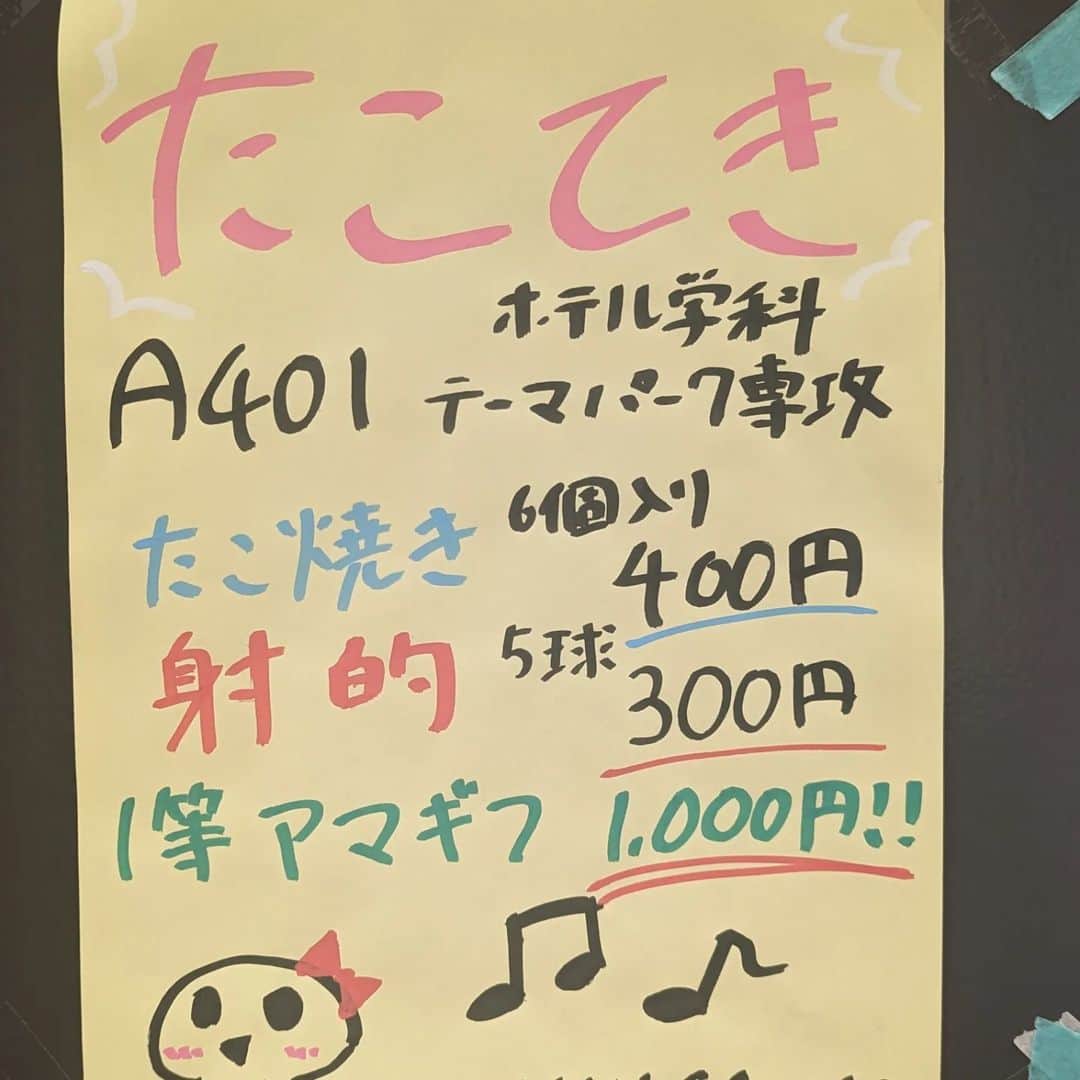 たこてき
ホテル学科
A401 テーマパーク専攻
たこ焼き 6個入り 400円
射的 5球 300円
1等 アマギフ 1.000円!!